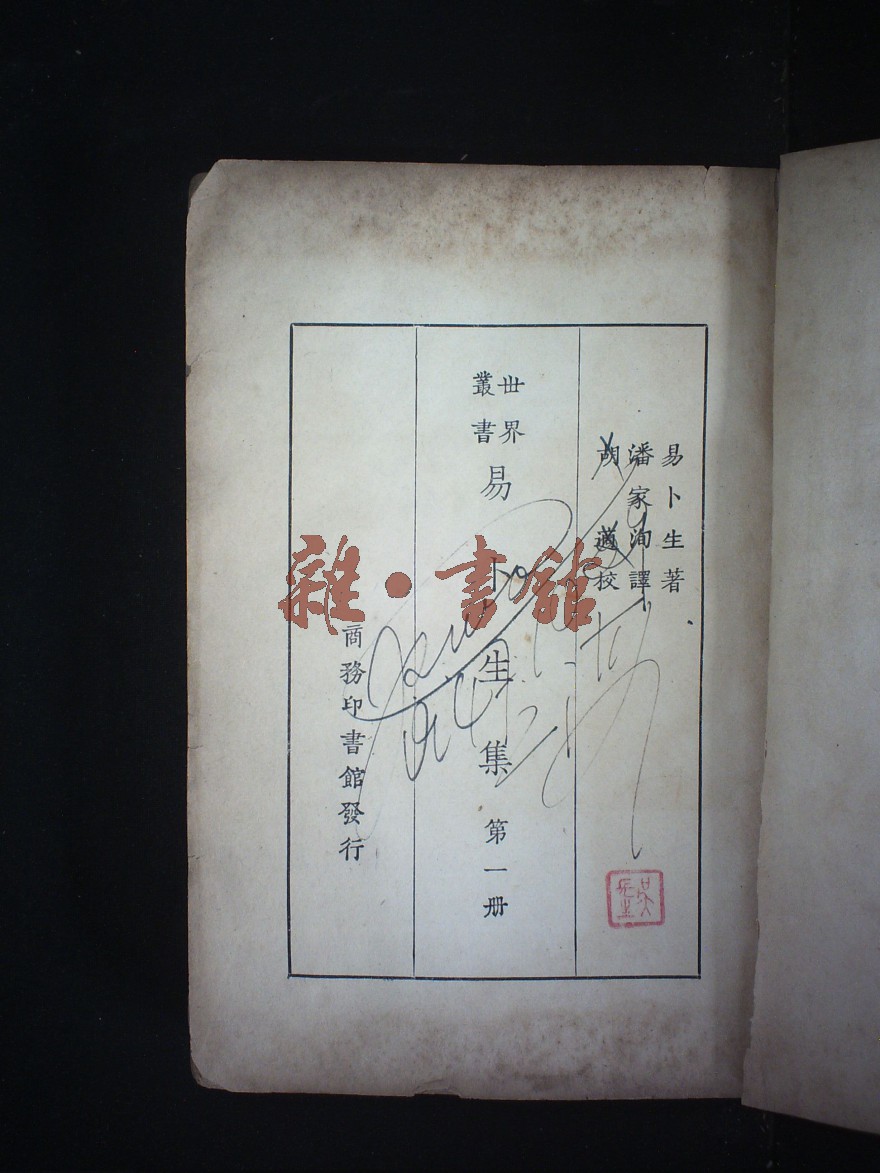 易卜生著
潘家洵譯
胡適校
世界
叢書
易卜生集 第一册
商務印書館發行
雜·書館